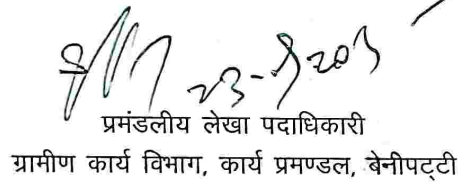 प्रमंडलीय लेखा पदाधिकारी
ग्रामीण कार्य विभाग, कार्य प्रमण्डल, बेनीपट्टी